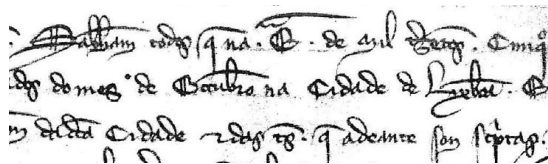 Sabham todos q̃ na . E . de mil Trezẽtos . Cinqo
dos do mes . de Octubro na Cidade de Lyxbõa . E
dadcã Cidade ⁊ das tᵒs . q̃ adeante son scriptas .